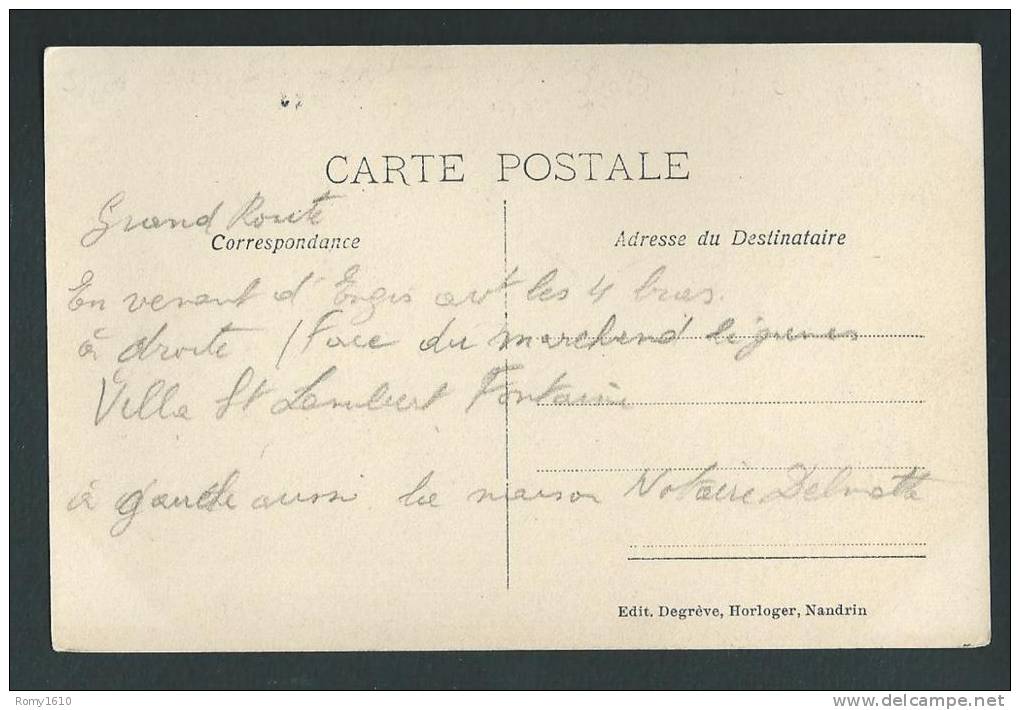 CARTE POSTALE
Grand Route
Correspondance
Adresse du Destinataire
En venant d'Engis avt les 4 bras.
à droite / Face du marchand légumes
Villa St Lambert Fontaine
à gauche aussi la maison Notaire Delvotte
Edit. Degrève, Horloger, Nandrin
Romy1610
www.delcampe.net